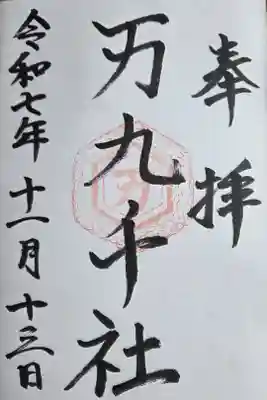 奉拝
万九千社
令和七年十一月十三日